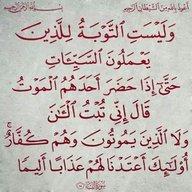 أعوذ بالله من الشيطان الرجيم
بسم الله الرحمن الرحيم
وَلَيْسَتِ التَّوْبَةُ لِلَّذِينَ
يَعْمَلُونَ السَّيِّئَاتِ
حَتَّىٰ إِذَا حَضَرَ أَحَدَهُمُ الْمَوْتُ
قَالَ إِنِّي تُبْتُ الْـَٰٔنَ
وَلَا الَّذِينَ يَمُوتُونَ وَهُمْ كُفَّارٌ ۚ
أُو۟لَٰٓئِكَ أَعْتَدْنَا لَهُمْ عَذَابًا أَلِيمًا
سورة النساء